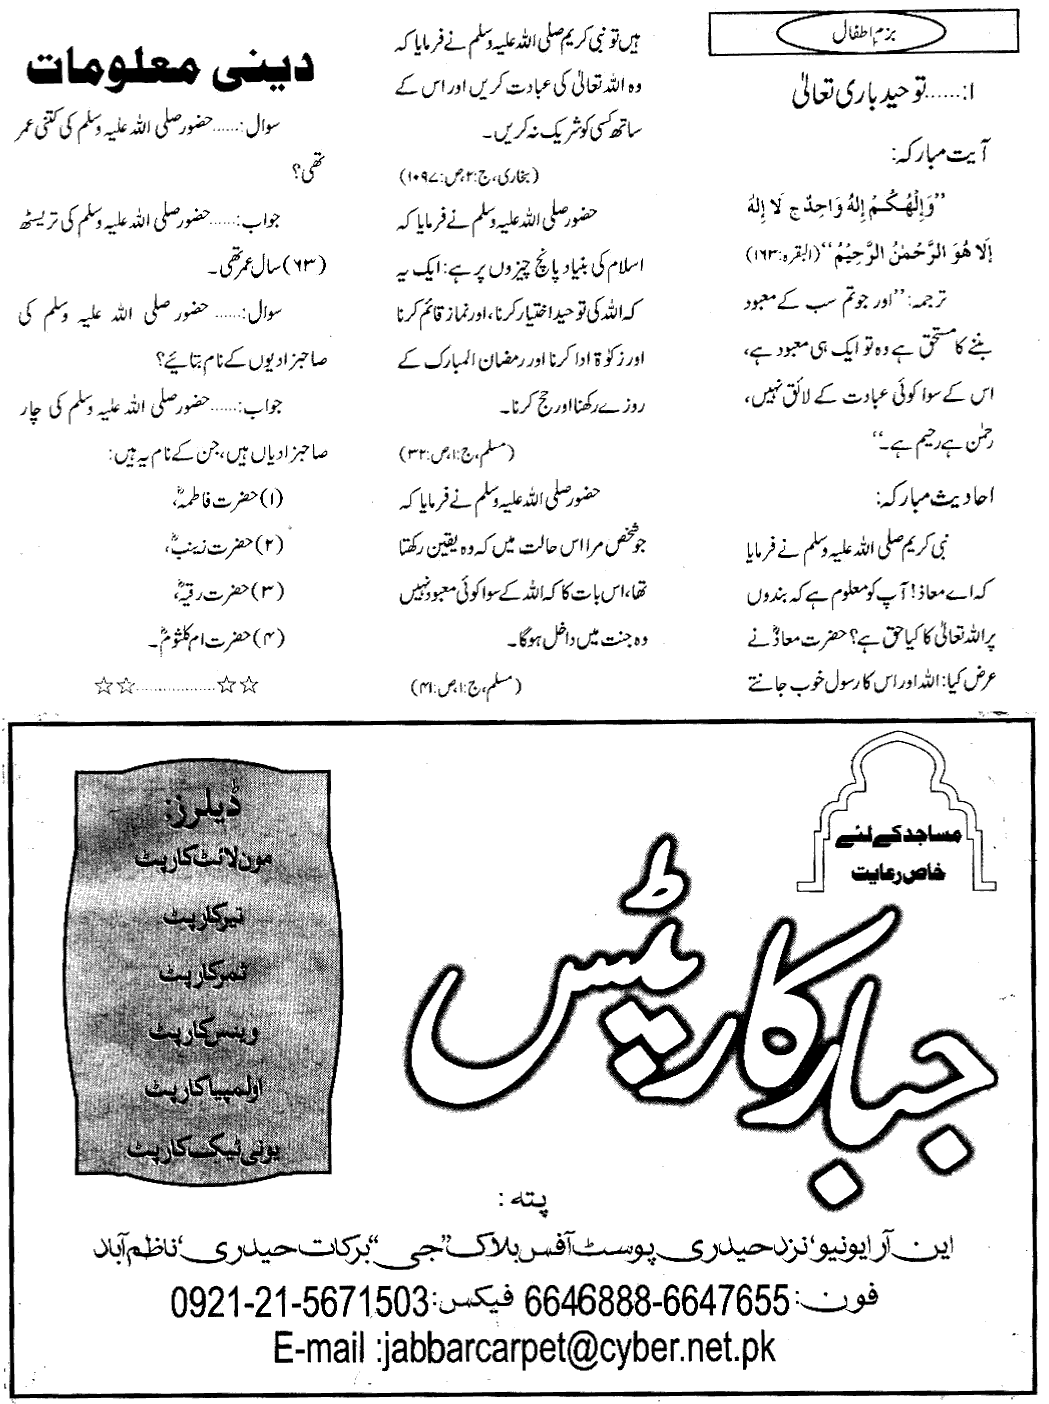 بزم اطفال
۱:......توحید باری تعالیٰ
آیت مبارکہ:
’’وَاِلٰهُكُمْ اِلٰهٌ وَّاحِدٌ ج لَا اِلٰهَ
اِلَّا هُوَ الرَّحْمٰنُ الرَّحِيْمُ‘‘ (البقرہ:۱۶۳)
ترجمہ: ’’اور جو تم سب کے معبود
بننے کا مستحق ہے وہ تو ایک ہی معبود ہے،
اس کے سوا کوئی عبادت کے لائق نہیں،
رحمٰن ہے رحیم ہے۔‘‘
احادیث مبارکہ:
نبی کریم صلی اللہ علیہ وسلم نے فرمایا
کہ اے معاذ! آپ کو معلوم ہے کہ بندوں
پر اللہ تعالیٰ کا کیا حق ہے؟ حضرت معاذؓ نے
عرض کیا: اللہ اور اس کا رسول خوب جانتے
ہیں تو نبی کریم صلی اللہ علیہ وسلم نے فرمایا کہ
وہ اللہ تعالیٰ کی عبادت کریں اور اس کے
ساتھ کسی کو شریک نہ کریں۔
(بخاری، ج:۲، ص:۱۰۹۷)
حضور صلی اللہ علیہ وسلم نے فرمایا کہ
اسلام کی بنیاد پانچ چیزوں پر ہے: ایک یہ
کہ اللہ کی توحید اختیار کرنا، اور نماز قائم کرنا
اور زکوٰۃ ادا کرنا اور رمضان المبارک کے
روزے رکھنا اور حج کرنا۔
(مسلم، ج:۱، ص:۳۲)
حضور صلی اللہ علیہ وسلم نے فرمایا کہ
جو شخص مرا اس حالت میں کہ وہ یقین رکھتا
تھا، اس بات کا کہ اللہ کے سوا کوئی معبود نہیں
وہ جنت میں داخل ہوگا۔
(مسلم، ج:۱، ص:۴۱)
دینی معلومات
سوال:...... حضور صلی اللہ علیہ وسلم کی کتنی عمر
تھی؟
جواب:...... حضور صلی اللہ علیہ وسلم کی تریسٹھ
(۶۳) سال عمر تھی۔
سوال:...... حضور صلی اللہ علیہ وسلم کی
صاحبزادیوں کے نام بتائیے؟
جواب:...... حضور صلی اللہ علیہ وسلم کی چار
صاحبزادیاں ہیں، جن کے نام یہ ہیں:
(۱) حضرت فاطمہؓ،
(۲) حضرت زینبؓ،
(۳) حضرت رقیہؓ،
(۴) حضرت ام کلثومؓ۔
☆☆..................☆☆
مساجد کے لئے
خاص رعایت
جبار کارپٹس
ڈیلرز:
مون لائٹ کارپٹ
نیر کارپٹ
ثمر کارپٹ
وینس کارپٹ
اولمپیا کارپٹ
یونی ٹیک کارپٹ
پتہ:
این آر ایونیو، نزد حیدری پوسٹ آفس بلاک ”جی“ برکات حیدری، ناظم آباد
فون: 6646888-6647655 فیکس: 0921-21-5671503
E-mail :jabbarcarpet@cyber.net.pk